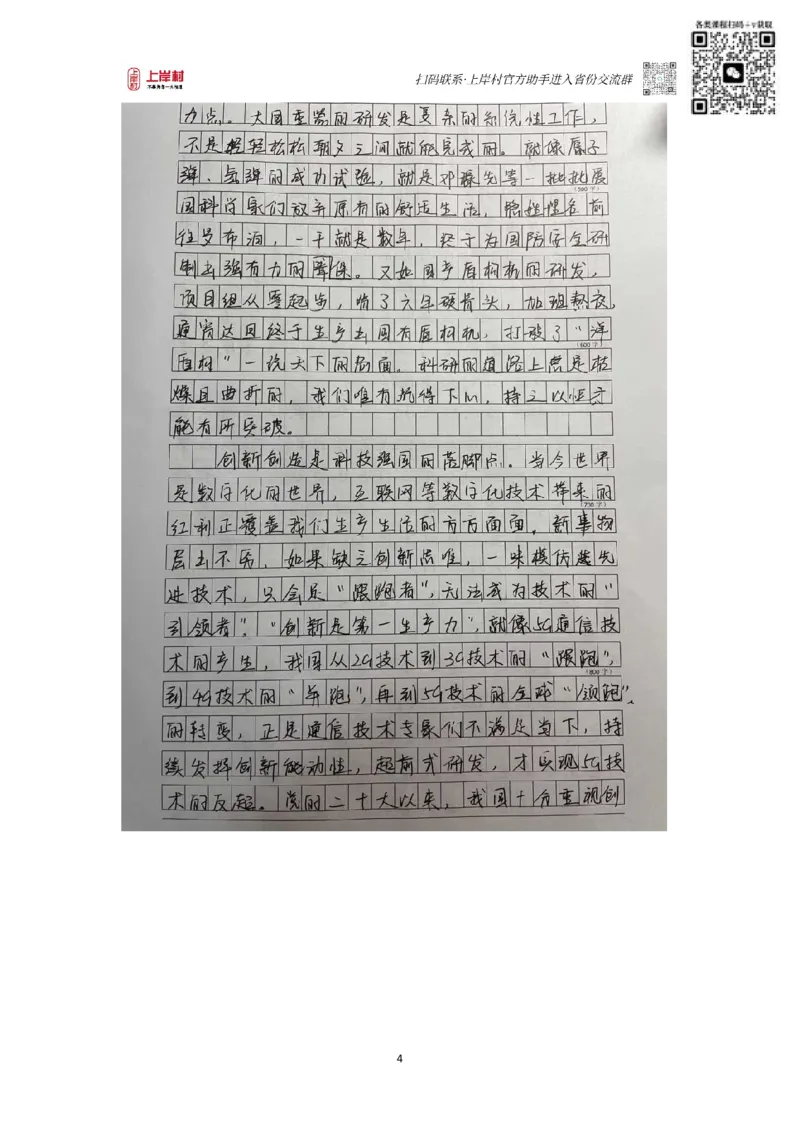 各类课程扫码+v获取
上岸村
上岸村
不单凭自一火相送
扫码联系·上岸村官方助手进入省份交流群
力点。大国重器的研发是复杂的系统性工作，
不是轻轻松松朝夕之间就能完成的。就像原子
弹、氢弹的成功试验，就是邓稼先等一批批爱
(500字)
国科学家们放弃原有的舒适生活，隐姓埋名前
往罗布泊，一干就是数年，终于为国防安全研
制出强有力的屏保。又如国产盾构机的研发，
项目组从零起步，啃了六年硬骨头，加班熬夜，
通宵达旦终于生产出国有盾构机，打破了“洋
(600字)
盾构”一统天下的局面。科研的道路上总是枯
燥且曲折的，我们唯有沉得下心，持之以恒才
能有所突破。
创新创造是科技强国的落脚点。当今世界
是数字化的世界，互联网等数字化技术带来的
(700字)
红利正覆盖我们生产生活的方方面面，新事物
层出不穷，如果缺乏创新思维，一味模仿
进技术，只会是“跟跑者”，无法成为技术的“
引领者”。“创新是第一生产力”，就像5G通信技
术的产生，我国从2G技术到3G技术的“跟跑”，
(800字)
到4G技术的“并跑”，再到5G技术的全球“领跑”
的转变，正是通信技术专家们不满足当下，持
续发挥创新能动性，超前式研发，才实现5G技
术的反超。党的二十大以来，我国十分重视创
4